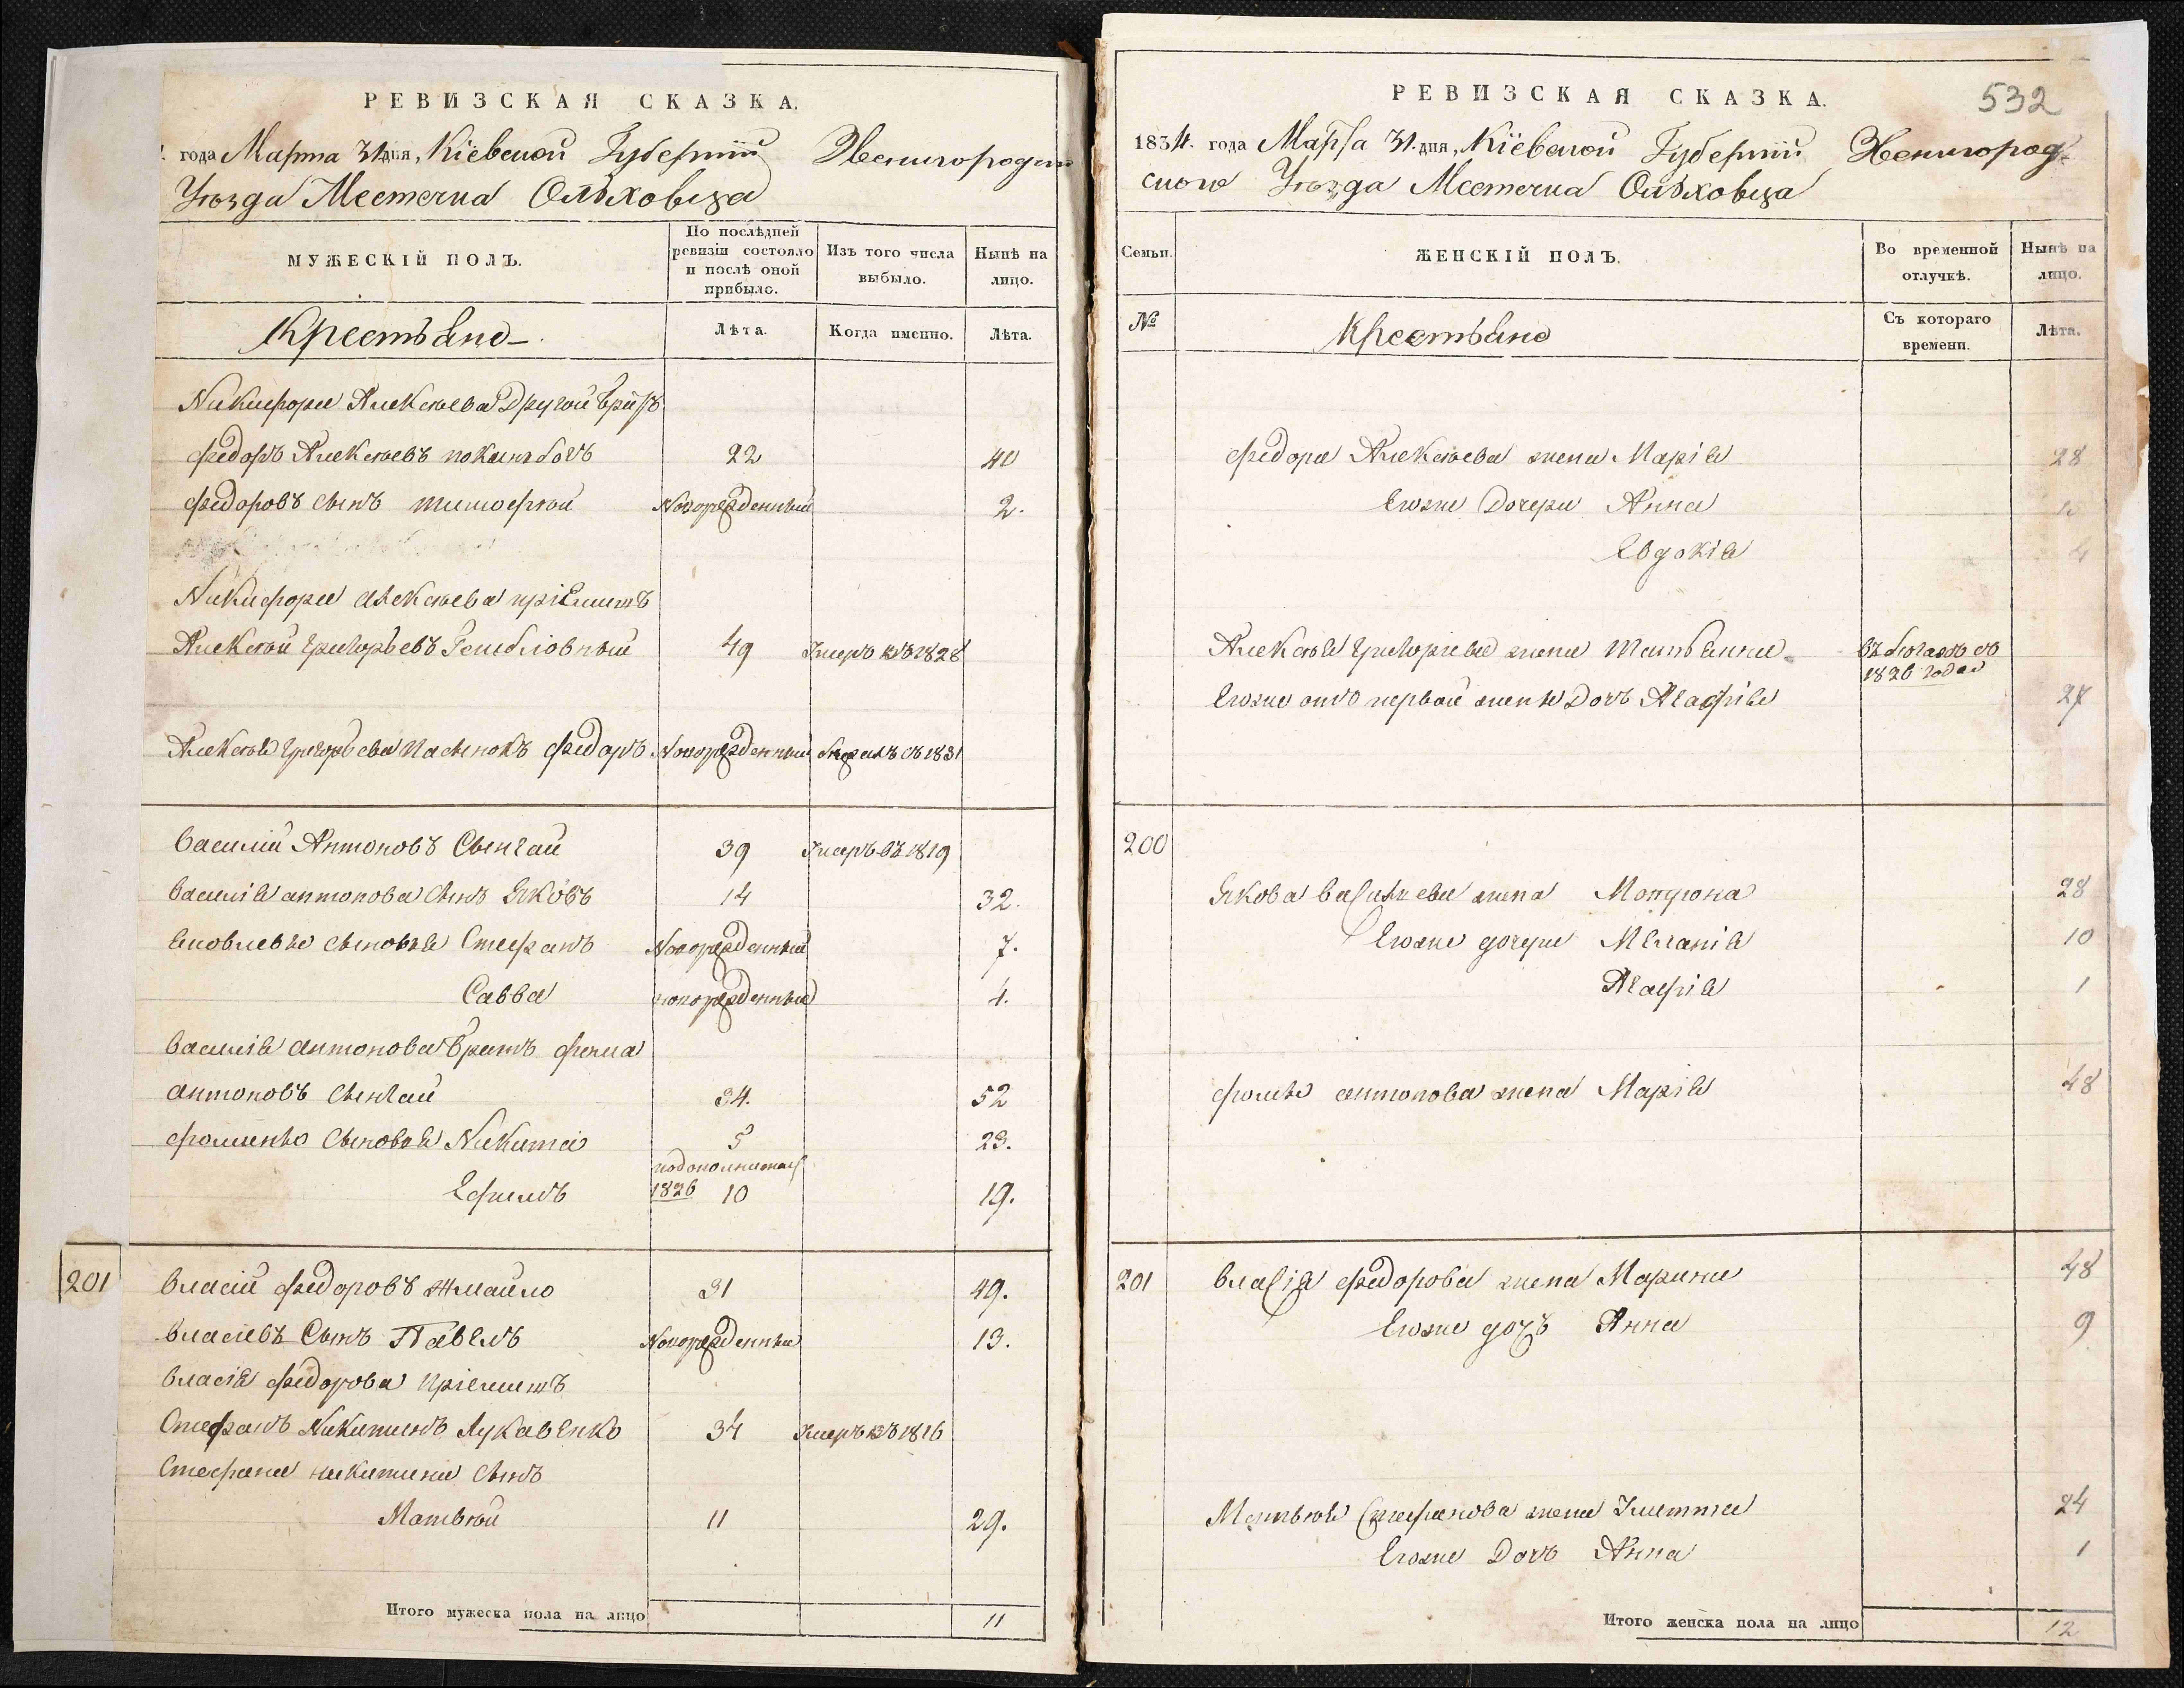 РЕВИЗСКАЯ СКАЗКА.
года Марта 31 дня, Кіевской Губерніи Звенигородск
Уѣзда Местечка Ольховца
МУЖЕСКІЙ ПОЛЪ.
По послѣдней ревизіи состояло и послѣ оной прибыло.
Изъ того числа выбыло.
Нынѣ на лицо.
Крестьяне
Лѣта.
Когда именно.
Лѣта.
Никифора Алексѣева Другой братъ
Федоръ Алексѣевъ 22 40
Федоровъ сынъ Тимофѣй Новорожденный 2.
Никифора Алексѣева пріемышъ
Алексѣй Григорьевъ 49 Умеръ въ 1828
Алексѣя Григорьева пасынокъ Федоръ Новорожденный бѣжалъ съ 1831
Василій Антоновъ Сынгай 39 Умеръ въ 1819
Василія антонова сынъ Яковъ 14 32.
Яковлевы сыновья Стефанъ Новорожденный 7.
Савва новорожденный 4.
Василія антонова братъ фома
антоновъ Сынгай 34. 52
фомины сыновья Никита 5 23.
Ефимъ 1826 10 19.
201 Власій федоровъ Жмайло 31 49.
Власіевъ Сынъ Павелъ Новорожденный 13.
Власія федорова пріемышъ
Стефанъ Никитинъ Лукавенко 34 Умеръ въ 1816
Стефана никитина сынъ
Матвѣй 11 29.
Итого мужеска пола на лицо 11
РЕВИЗСКАЯ СКАЗКА.
532
1834. года Марта 31. дня, Кіевской Губерніи Звенигород-
ского Уѣзда Местечка Ольховца
Семьи.
ЖЕНСКІЙ ПОЛЪ.
Во временной отлучкѣ.
Нынѣ на лицо.
№
Крестьяне
Съ котораго времени.
Лѣта.
Федора Алексѣева жена Марія 28
Егоже Дочери Анна
Евдокія 4
Алексѣя Григоріева жена Татьянна въ бѣгахъ съ
1826 года
Егоже отъ первой жены Дочь Агафія 27
200
Якова Васильева жена Мотрона 28
Егоже дочери Меланія 10
Агафія 1
фомы антонова жена Марія 48
201 Власія федорова жена Марина 48
Егоже дочь Анна 9
Матвѣя Стефанова жена 24
Егоже Дочь Анна 1
Итого женска пола на лицо 12